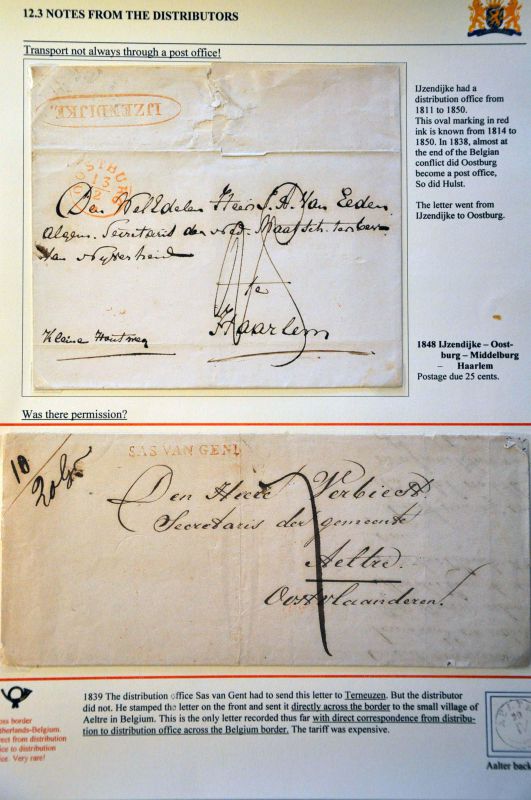 12.3 NOTES FROM THE DISTRIBUTORS
Transport not always through a post office!
IJZENDIJKE
OOSTBURG
13
2
Den WelEdelen Heer J. A. Van Eeden
Algem. Secretaris der Ned. Maatsch. ter bev.
van Nijverheid
te
Haarlem
Kleine Houtweg
IJzendijke had a
distribution office from
1811 to 1850.
This oval marking in red
ink is known from 1814 to
1850. In 1838, almost at
the end of the Belgian
conflict did Oostburg
become a post office,
So did Hulst.
The letter went from
IJzendijke to Oostburg.
1848 IJzendijke – Oost-
burg – Middelburg
– Haarlem
Postage due 25 cents.
Was there permission?
10
SAS VAN GENT
Den Heere Verbiest
Secretaris der gemeente
Aeltre.
Oostvlaanderen.
1839 The distribution office Sas van Gent had to send this letter to Terneuzen. But the distributor
did not. He stamped the letter on the front and sent it directly across the border to the small village of
Aeltre in Belgium. This is the only letter recorded thus far with direct correspondence from distribu-
tion to distribution office across the Belgium border. The tariff was expensive.
oss border
therlands-Belgium.
rect from distribution
ice to distribution
ice. Very rare!
Aalter back